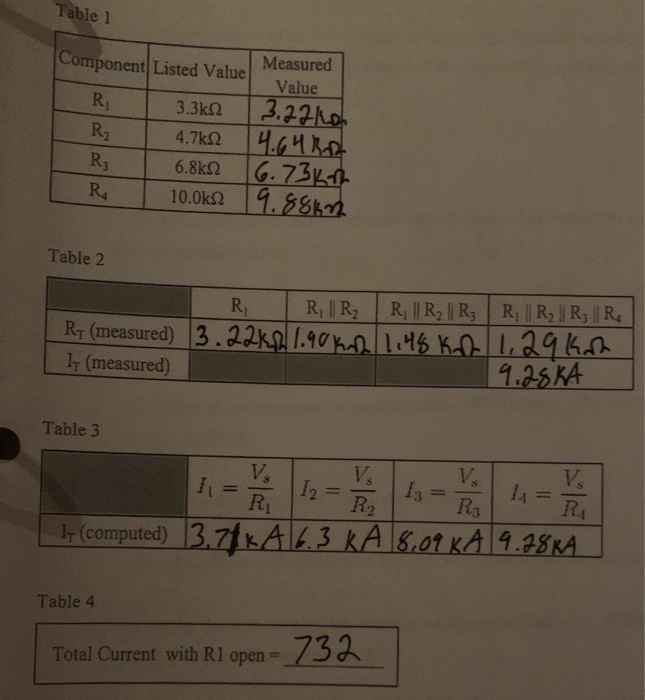 Table 1
Component Listed Value Measured Value
R₁ 3.3kΩ 3.22kΩ
R₂ 4.7kΩ 4.64KΩ
R₃ 6.8kΩ 6.73KΩ
R₄ 10.0kΩ 9.88kΩ
Table 2
R₁ R₁ || R₂ R₁ || R₂ || R₃ R₁ || R₂ || R₃ || R₄
R_T (measured) 3.22kΩ 1.90KΩ 1.48 KΩ 1.29KΩ
I_T (measured) 9.28KA
Table 3
I₁ = V_s/R₁ I₂ = V_s/R₂ I₃ = V_s/R₃ I₄ = V_s/R₄
I_T (computed) 3.71kA 6.3 KA 8.09 KA 9.28KA
Table 4
Total Current with R1 open = 732